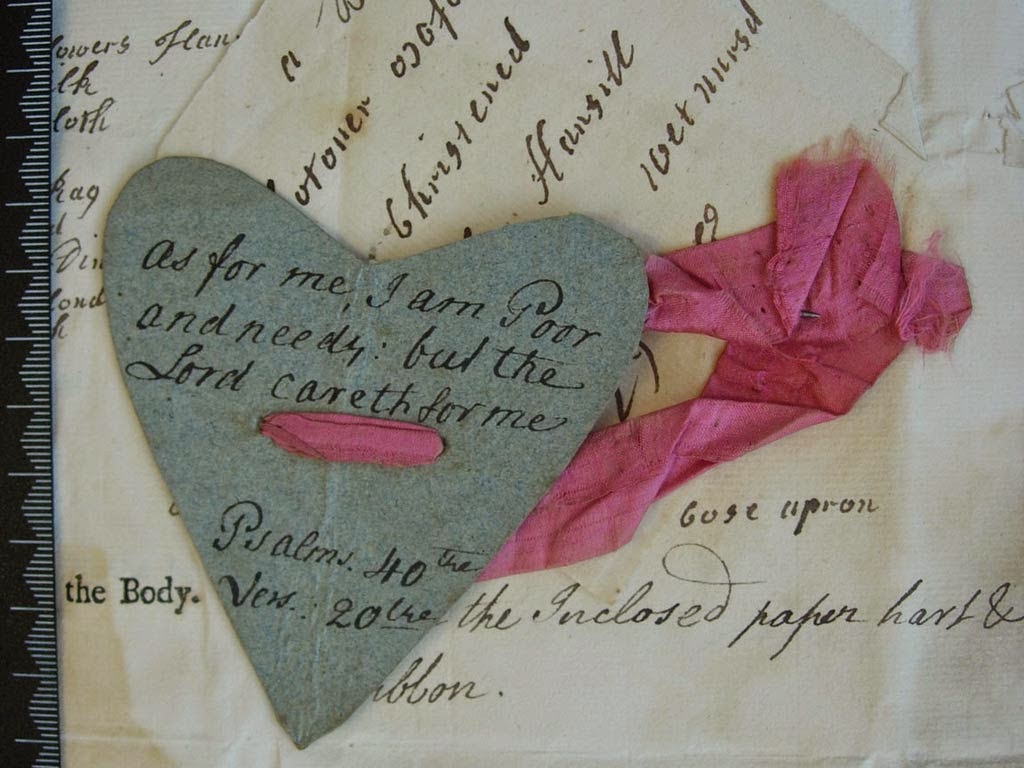 owers flan
lk
loth
kag
Din
lond
h
a
Christened
Hansill
wet nursd
As for me, I am Poor
and needy: but the
Lord careth for me
Psalms. 40the
Vers. 20the
bose apron
the Body.
the Inclosed paper hart &
ibbon.